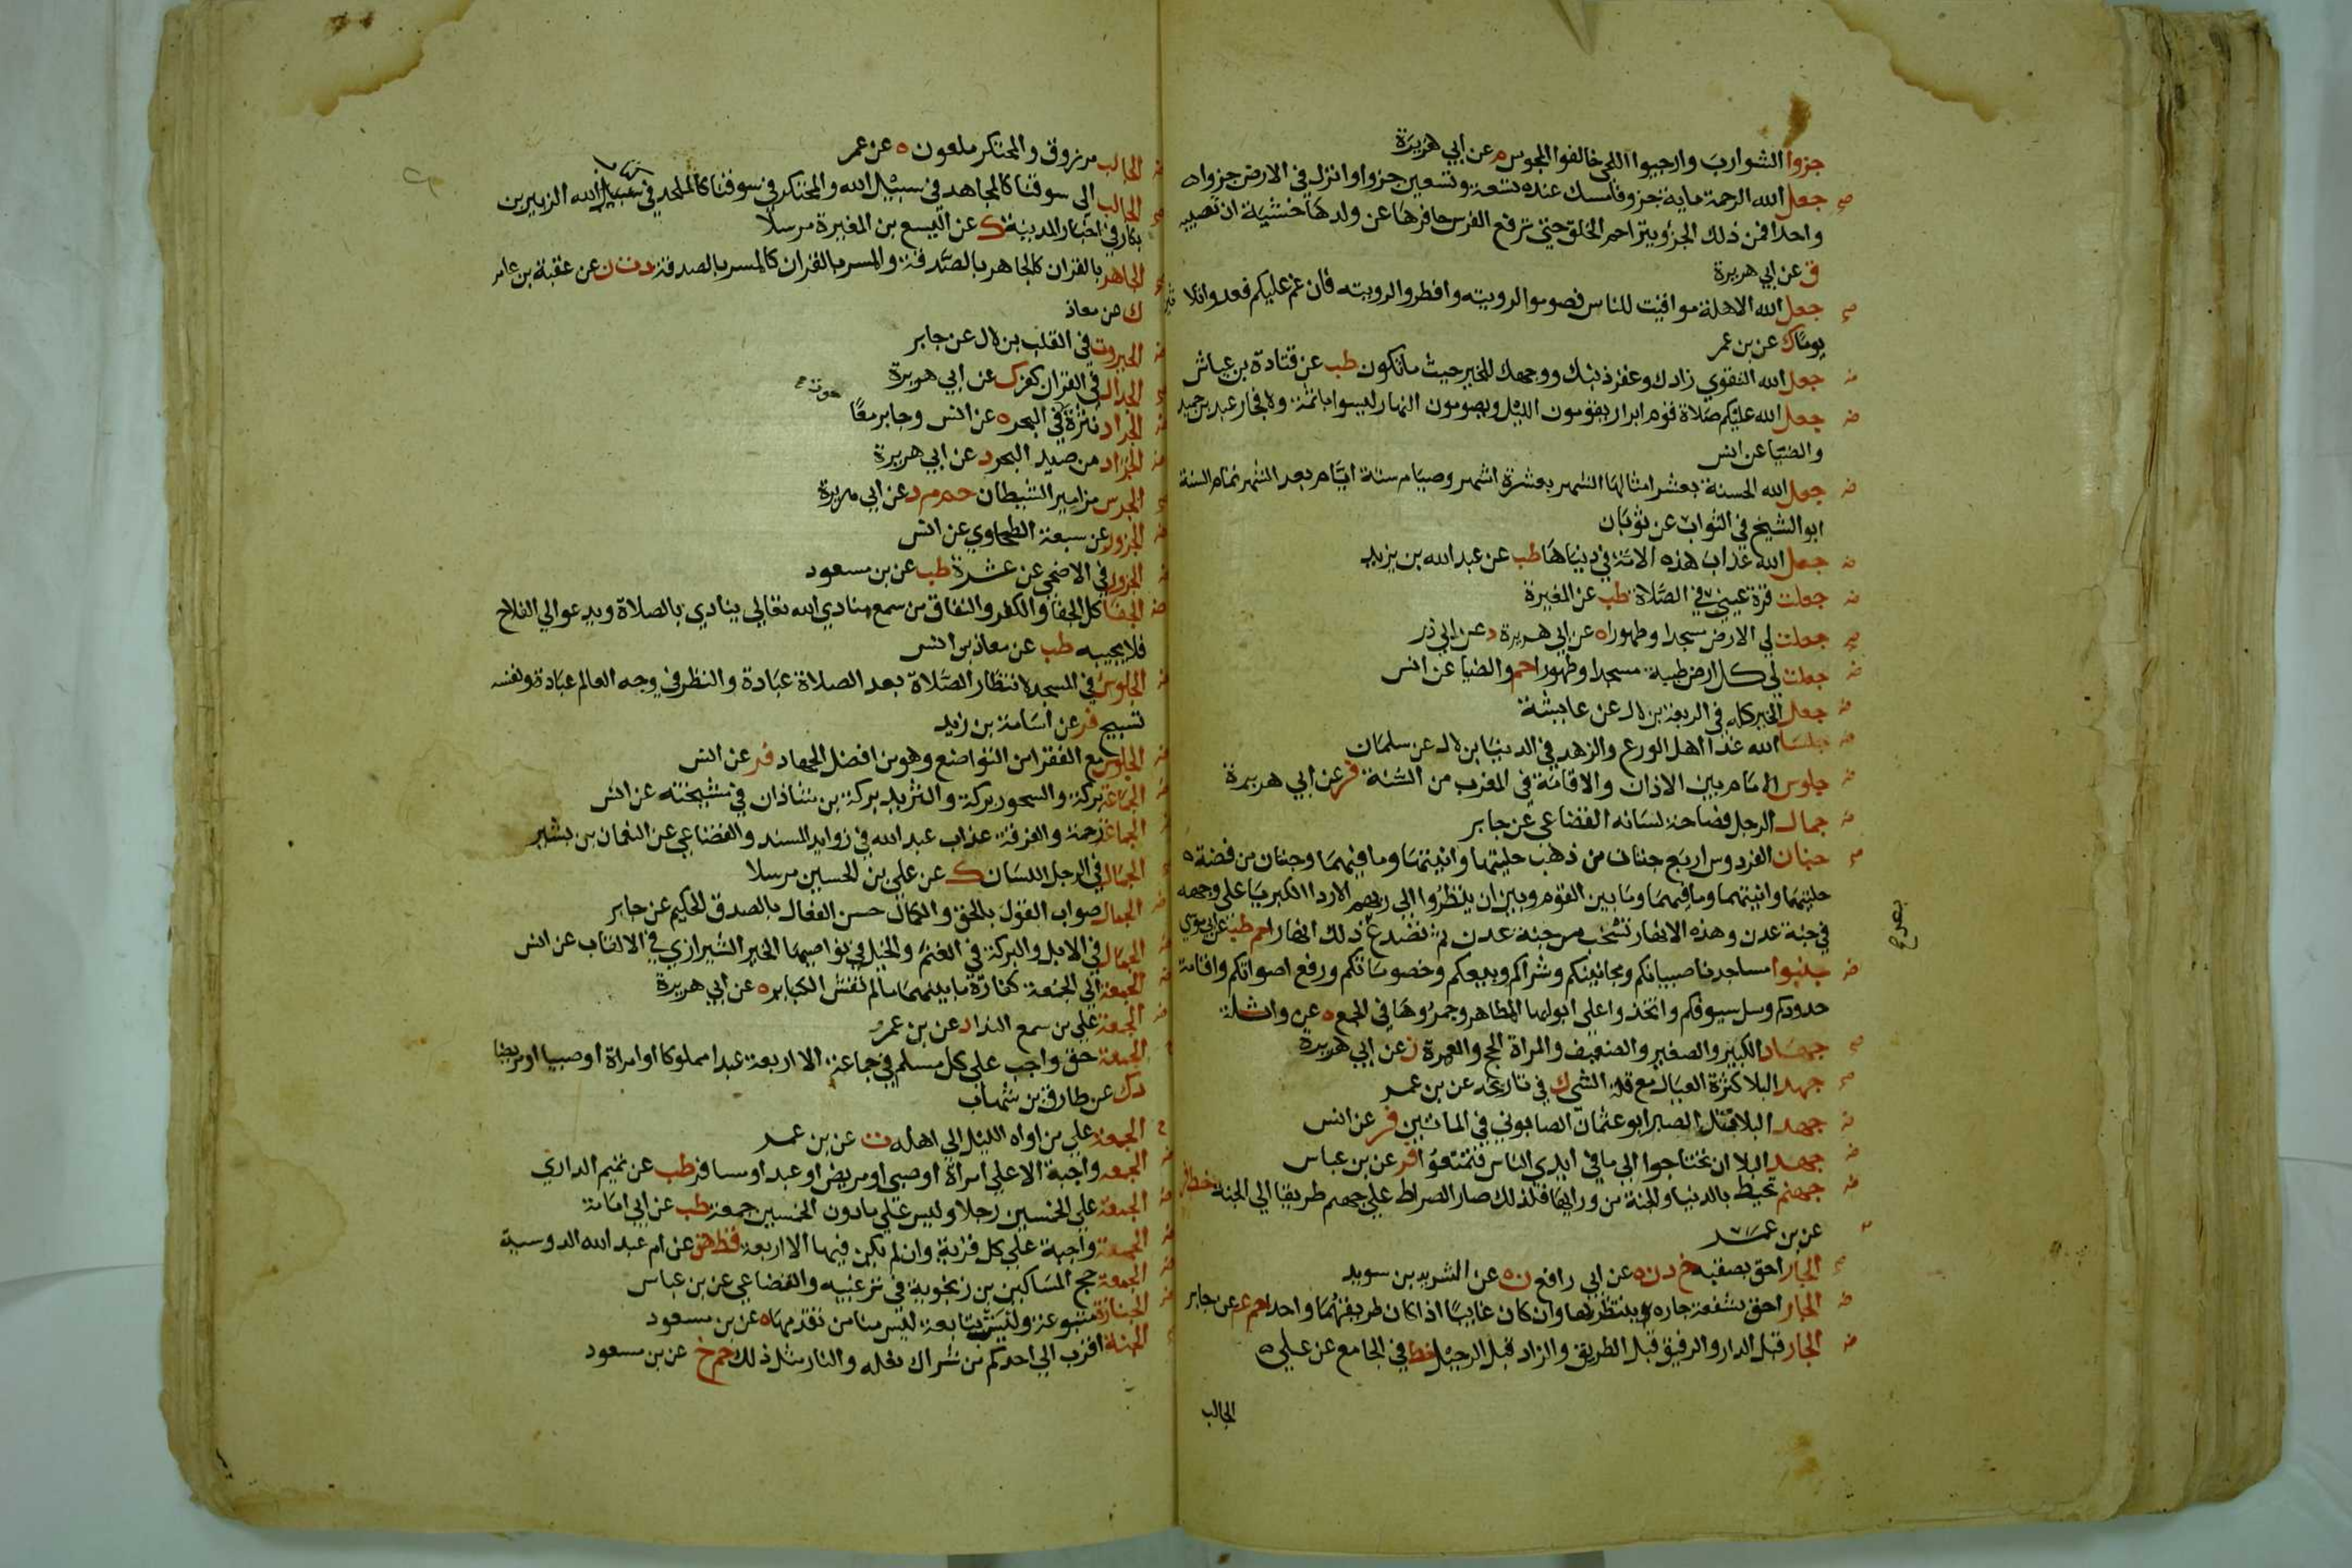 جزوا الشوارب وارجيوا اللحى خالفوا المجوس م عن ابي هريرة
جعل الله الرحمة ماية جزو فامسك عنده تسعة وتسعين جزوا وانزل في الارض جزوا
واحدا فمن ذلك الجزو يتراحم الخلق حتي ترفع الفرس حافرها عن ولدها خشية ان تصيبه
ق عن ابي هريرة
جعل الله الاهلة مواقيت للناس فصوموا لرويته وافطروا لرويته فان غم عليكم فعدوا ثلاثين
يوما ك عن بن عمر
جعل الله التقوي زادك وغفر ذنبك ووجهك للخير حيث ما تكون طب عن قتادة بن عياش
جعل الله عليكم صلاة قوم ابرار يقومون الليل ويصومون النهار ليسوا باثمة ولا فجار عبد بن حميد
والضيا عن انس
جعل الله الحسنة بعشر امثالها الشهر بعشرة اشهر وصيام ستة ايام بعد الشهر تمام السنة
ابو الشيخ في الثواب عن ثوبان
جعل الله عذاب هذه الامة في دنياها طب عن عبد الله بن يزيد
جعلت قرة عيني في الصلاة طب عن المغيرة
جعلت لي الارض مسجدا وطهورا ه عن ابي هريرة د عن ابي ذر
جعلت لي كل ارض طيبة مسجدا وطهورا حم والضيا عن انس
جعل الخير كله في الربعة بن لال عن عايشة
جلسا الله غدا اهل الورع والزهد في الدنيا بن لال عن سلمان
جلوس الامام بين الاذان والاقامة في المغرب من السنة فر عن ابي هريرة
جمال الرجل فصاحة لسانه القضاعي عن جابر
جنان الفردوس اربع جنتان من ذهب حليتهما وانيتهما وما فيهما وجنتان من فضة
حليتهما وانيتهما وما فيهما وما بين القوم وبين ان ينظروا الي ربهم الا ردا الكبريا علي وجهه
في جنة عدن وهذه الانهار تشخب من جنة عدن ثم تصدع بعد ذلك انهارا حم طب عن ابي موسي
جنبوا مساجدنا صبيانكم ومجانينكم وشراكم وبيعكم وخصوماتكم ورفع اصواتكم واقامة
حدودكم وسل سيوفكم واتخذوا علي ابوابها المطاهر وجمروها في الجمع ه عن واثلة
جهاد الكبير والصغير والضعيف والمراة الحج والعمرة ن عن ابي هريرة
جهد البلا كثرة العيال مع قلة الشي ك في تاريخه عن بن عمر
جهد البلا قتل الصبر ابو عثمان الصابوني في الماتين فر عن انس
جهد البلا ان تحتاجوا الي ما في ايدي الناس فتمنعوا فر عن بن عباس
جهنم تحيط بالدنيا والجنة من ورايها فلذلك صار الصراط علي جهنم طريقا الي الجنة خط فر
عن بن عمر
الجار احق بصقبه خ د ن ه عن ابي رافع ن ه عن الشريد بن سويد
الجار احق بشفعة جاره ينتظر بها وان كان غايبا اذا كان طريقهما واحدا حم عم عن جابر
الجار قبل الدار والرفيق قبل الطريق والزاد قبل الرحيل خط في الجامع عن علي
الجالب
الجالب مرزوق والمحتكر ملعون ه عن عمر
الجالب الي سوقنا كالمجاهد في سبيل الله والمحتكر في سوقنا كالملحد في كتاب الله الزبير بن
بكار في اخبار المدينة ك عن اليسع بن المغيرة مرسلا
الجاهر بالقران كالجاهر بالصدقة والمسر بالقران كالمسر بالصدقة د ت ن عن عقبة بن عامر
ك عن معاذ
الجبروت في القلب بن لال عن جابر
الجدال في القران كفر ك عن ابي هريرة
الجراد نثرة حوت في البحر ه عن انس وجابر معا
الجراد من صيد البحر د عن ابي هريرة
الجرس مزامير الشيطان حم م د عن ابي هريرة
الجزور عن سبعة الطحاوي عن انس
الجزور في الاضحي عن عشرة طب عن بن مسعود
الجفا كل الجفا والكفر والنفاق من سمع منادي الله تعالي ينادي بالصلاة ويدعو الي الفلاح
فلا يجيبه طب عن معاذ بن انس
الجلوس في المسجد لانتظار الصلاة بعد الصلاة عبادة والنظر في وجه العالم عبادة ونفسه
تسبيح فر عن اسامة بن زيد
الجلوس مع الفقرا من التواضع وهو من افضل الجهاد فر عن انس
الجماعة بركة والسحور بركة والثريد بركة بن شاذان في مشيخته عن انس
الجماعة رحمة والفرقة عذاب عبد الله في زوايد المسند والقضاعي عن النعمان بن بشير
الجمال في الرجل اللسان ك عن علي بن الحسين مرسلا
الجمال صواب القول بالحق والكمال حسن الفعال بالصدق الحكيم عن جابر
الجمال في الابل والبركة في الغنم والخيل في نواصيها الخير الشيرازي في الالقاب عن انس
الجمعة الي الجمعة كفارة ما بينهما ما لم تغش الكباير ه عن ابي هريرة
الجمعة علي من سمع الندا د عن بن عمرو
الجمعة حق واجب علي كل مسلم في جماعة الا اربعة عبدا مملوكا او امراة او صبيا او مريضا
د ك عن طارق بن شهاب
الجمعة علي من اواه الليل الي اهله ت عن بن عمر
الجمعة واجبة الا علي امراة او صبي او مريض او عبد او مسافر طب عن تميم الداري
الجمعة علي الخمسين رجلا وليس علي ما دون الخمسين جمعة طب عن ابي امامة
الجمعة واجبة علي كل قرية وان لم يكن فيها الا اربعة قط هق عن ام عبد الله الدوسية
الجمعة حج المساكين بن زنجويه في ترغيبه والقضاعي عن بن عباس
الجنازة متبوعة وليست بتابعة ليس منا من تقدمها ه عن بن مسعود
الجنة اقرب الي احدكم من شراك نعله والنار مثل ذلك حم خ عن بن مسعود